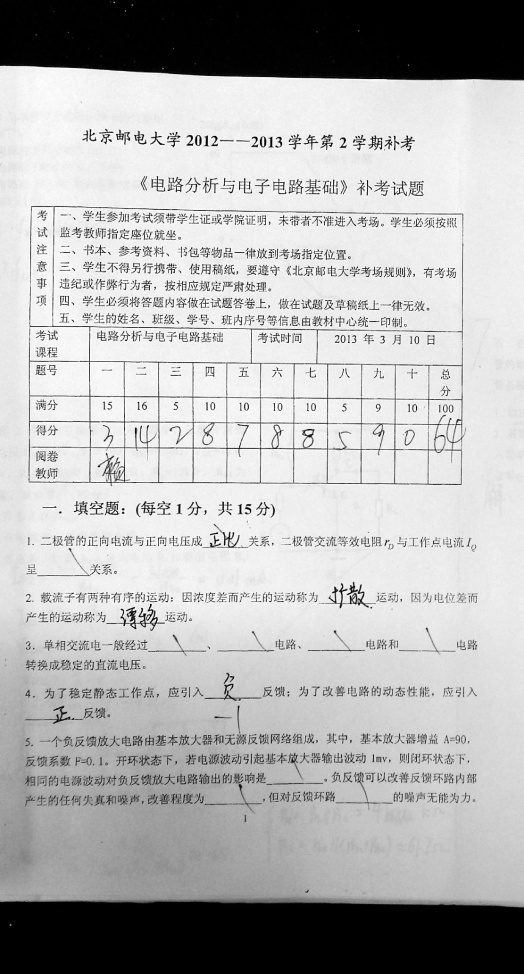 北京邮电大学2012——2013学年第2学期补考
《电路分析与电子电路基础》补考试题
考试注意事项
一、学生参加考试须带学生证或学院证明，未带者不准进入考场。学生必须按照
监考教师指定座位就坐。
二、书本、参考资料、书包等物品一律放到考场指定位置。
三、学生不得另行携带、使用稿纸，要遵守《北京邮电大学考场规则》，有考场
违纪或作弊行为者，按相应规定严肃处理。
四、学生必须将答题内容做在试题答卷上，做在试题及草稿纸上一律无效。
五、学生的姓名、班级、学号、班内序号等信息由教材中心统一印制。
考试课程 电路分析与电子电路基础 考试时间 2013 年 3 月 10 日
题号 一 二 三 四 五 六 七 八 九 十 总分
满分 15 16 5 10 10 10 10 5 9 10 100
得分 3 14 2 8 7 8 8 5 9 0 64
阅卷教师
一．填空题：(每空1分，共15分)
1. 二极管的正向电流与正向电压成 正比 关系，二极管交流等效电阻rD与工作点电流IQ
呈 \ 关系。
2. 载流子有两种有序的运动：因浓度差而产生的运动称为 扩散 运动，因为电位差而
产生的运动称为 漂移 运动。
3. 单相交流电一般经过 \ 、 \ 电路、 \ 电路和 \ 电路
转换成稳定的直流电压。
4. 为了稳定静态工作点，应引入 负 反馈；为了改善电路的动态性能，应引入
正 反馈。
-1
5. 一个负反馈放大电路由基本放大器和无源反馈网络组成，其中，基本放大器增益 A=90，
反馈系数 F=0.1。开环状态下，若电源波动引起基本放大器输出波动 1mv，则闭环状态下，
相同的电源波动对负反馈放大电路输出的影响是 \ 。负反馈可以改善反馈环路内部
产生的任何失真和噪声，改善程度为 \ ，但对反馈环路 \ 的噪声无能为力。
1